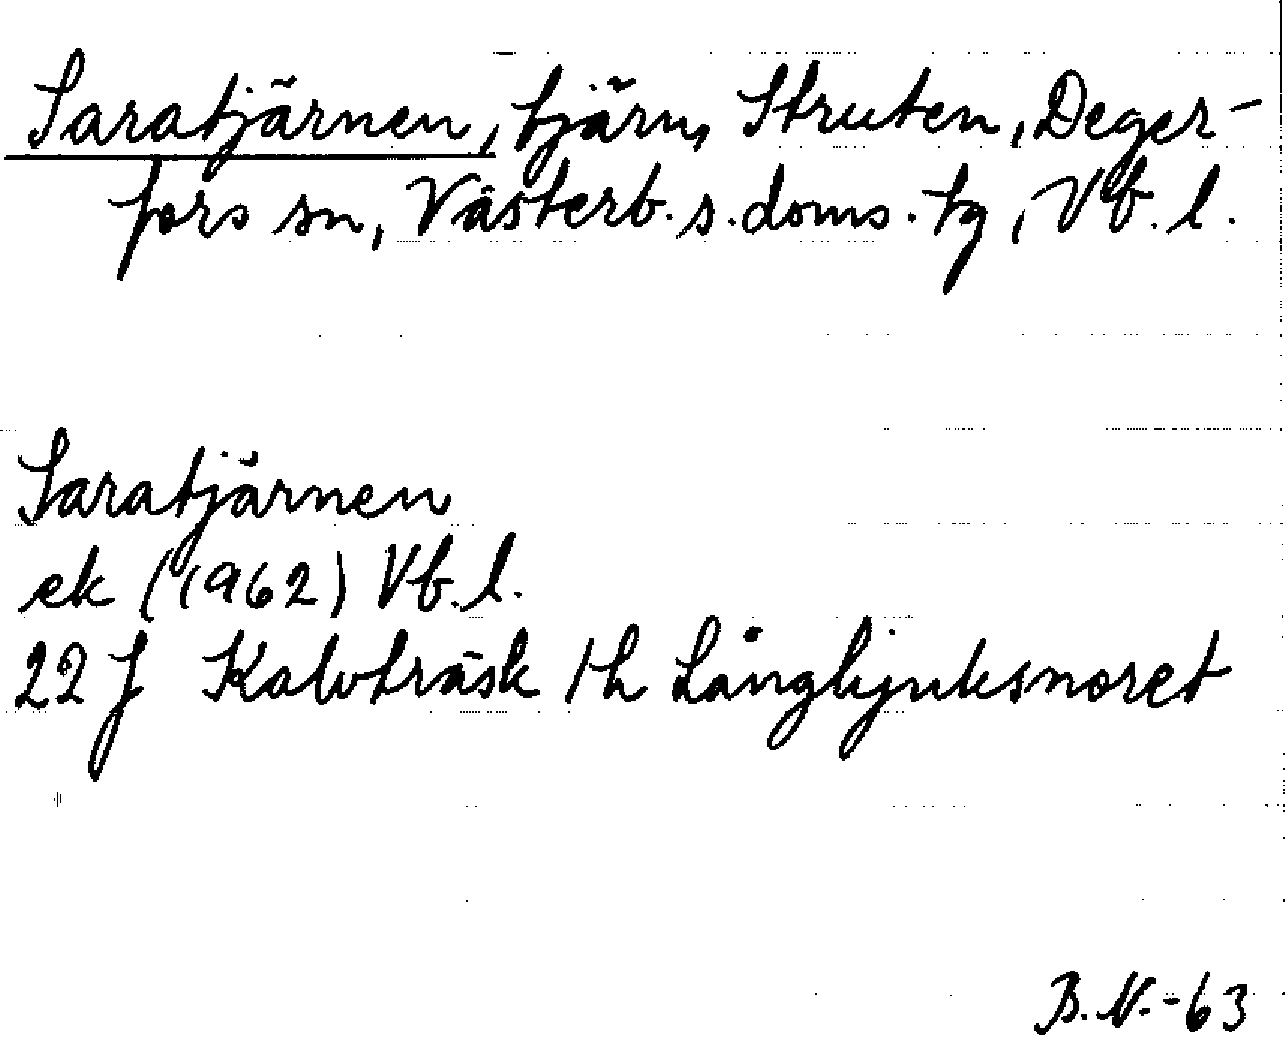 Saratjärnen, tjärn, Struten, Deger-
fors sn, Västerb. s. doms. tg, Vb. l.
Saratjärnen
ek (1962) Vb. l.
22 J Kalvträsk 1 h Långbjuksnoret
B. N. -63